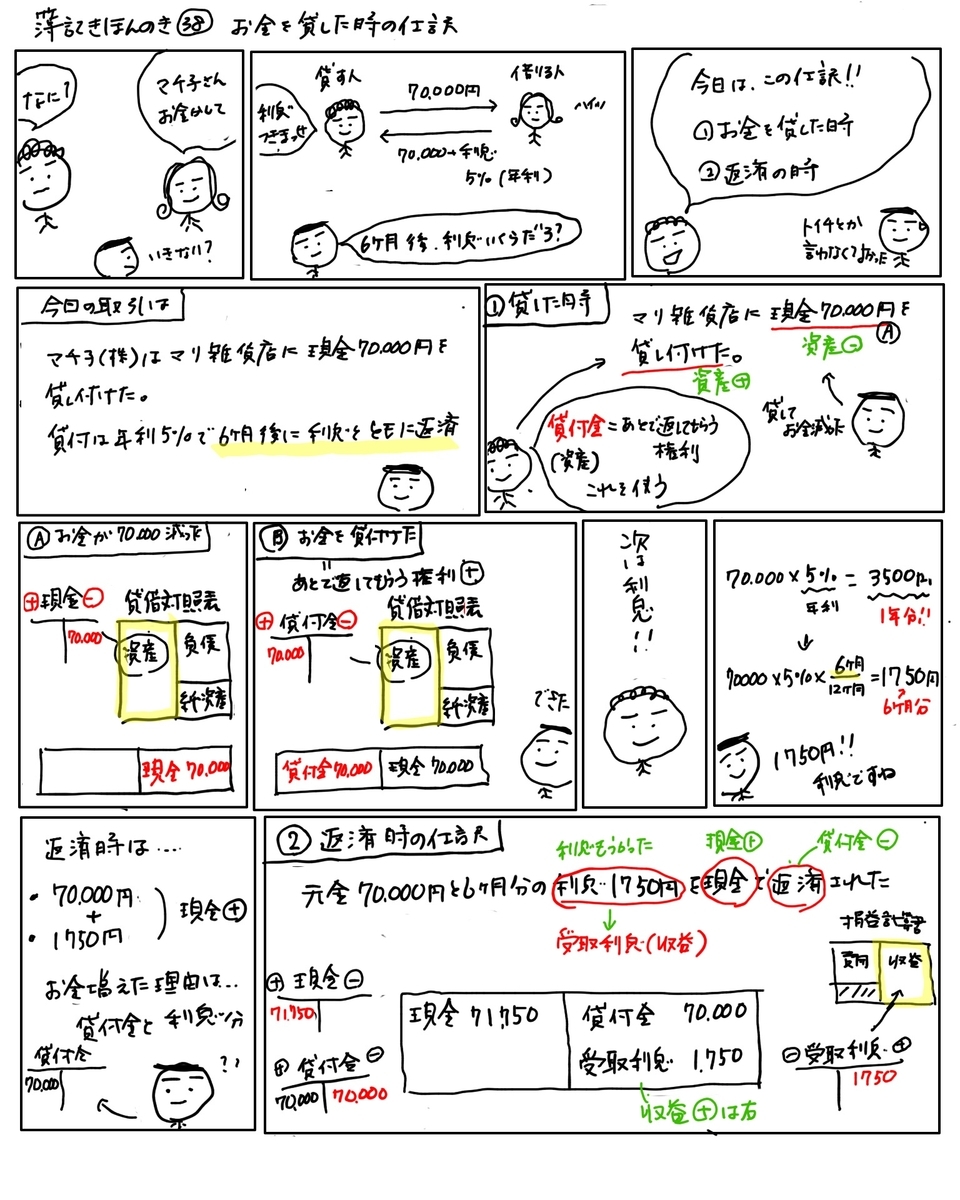 簿記きほんのき㊳ お金を貸した時の仕訳
なに?
マチ子さん
お金かして
いきなり?
貸す人
借りる人
利息
つきまっせ
70,000円
ハイハイ
70,000+利息
5%(年利)
6ヶ月後、利息いくらだろ?
今日は、この仕訳!!
①お金を貸した時
②返済の時
トイチとか
言わなくてよかった
今日の取引は
マチ子(株)はマリ雑貨店に現金70,000円を
貸し付けた。
貸付は年利5%で6ヶ月後に利息とともに返済
①貸した時
マリ雑貨店に現金70,000円を
Ⓐ
資産⊖
貸し付けた。
資産⊕
貸付金=あとで返してもらう
(資産) 権利
これを使う
貸して
お金減った
Ⓐお金が70,000減った
⊕現金⊖
70,000
貸借対照表
資産
負債
純資産
現金 70,000
Ⓑ お金を貸付けた
=
あとで返してもらう権利⊕
⊕貸付金⊖
70,000
貸借対照表
資産
負債
純資産
貸付金70,000
現金 70,000
できた
次は利息!!
70,000×5%=3500円
年利
1年分!!
↓
70000×5%×6ヶ月/12ヶ月=1750円
6ヶ月分
1750円!!
利息ですね
返済時は…
・70,000円
+
・1750円
現金⊕
お金増えた理由は…
貸付金と利息分
貸付金
70,000
??
②返済時の仕訳
利息もうかった
現金⊕
貸付金⊖
元金70,000円と6ヶ月分の利息1750円を現金で返済された
受取利息(収益)
損益計算書
費用
収益
⊕現金⊖
71,750
⊕貸付金⊖
70,000
70,000
現金 71,750
貸付金 70,000
受取利息 1,750
収益⊕は右
⊖受取利息⊕
1750